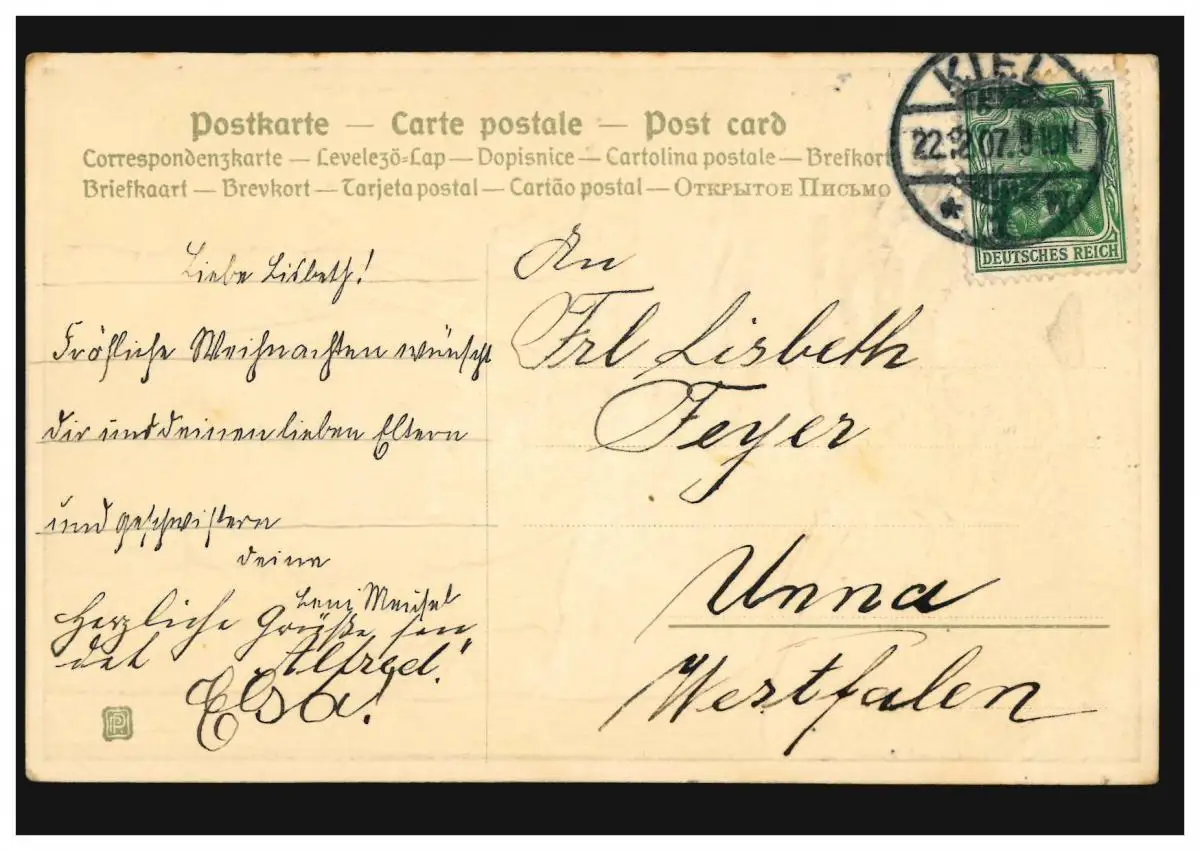 Postkarte — Carte postale — Post card
Correspondenzkarte — Levelező-Lap — Dopisnice — Cartolina postale — Brefkort
Briefkaart — Brevkort — Tarjeta postal — Cartão postal — Открытое Письмо
KIEL
22.12.07. 9-10N.
* 1
5
DEUTSCHES REICH
Liebe Lisbeth!
Fröhliche Weihnachten wünscht
dir und deinen lieben Eltern
und geschwistern
deine
Leni Meusel
Herzliche Grüße sen
det Alfred."
Elsa!
An
Frl Lisbeth
Feyer
Unna
Westfalen